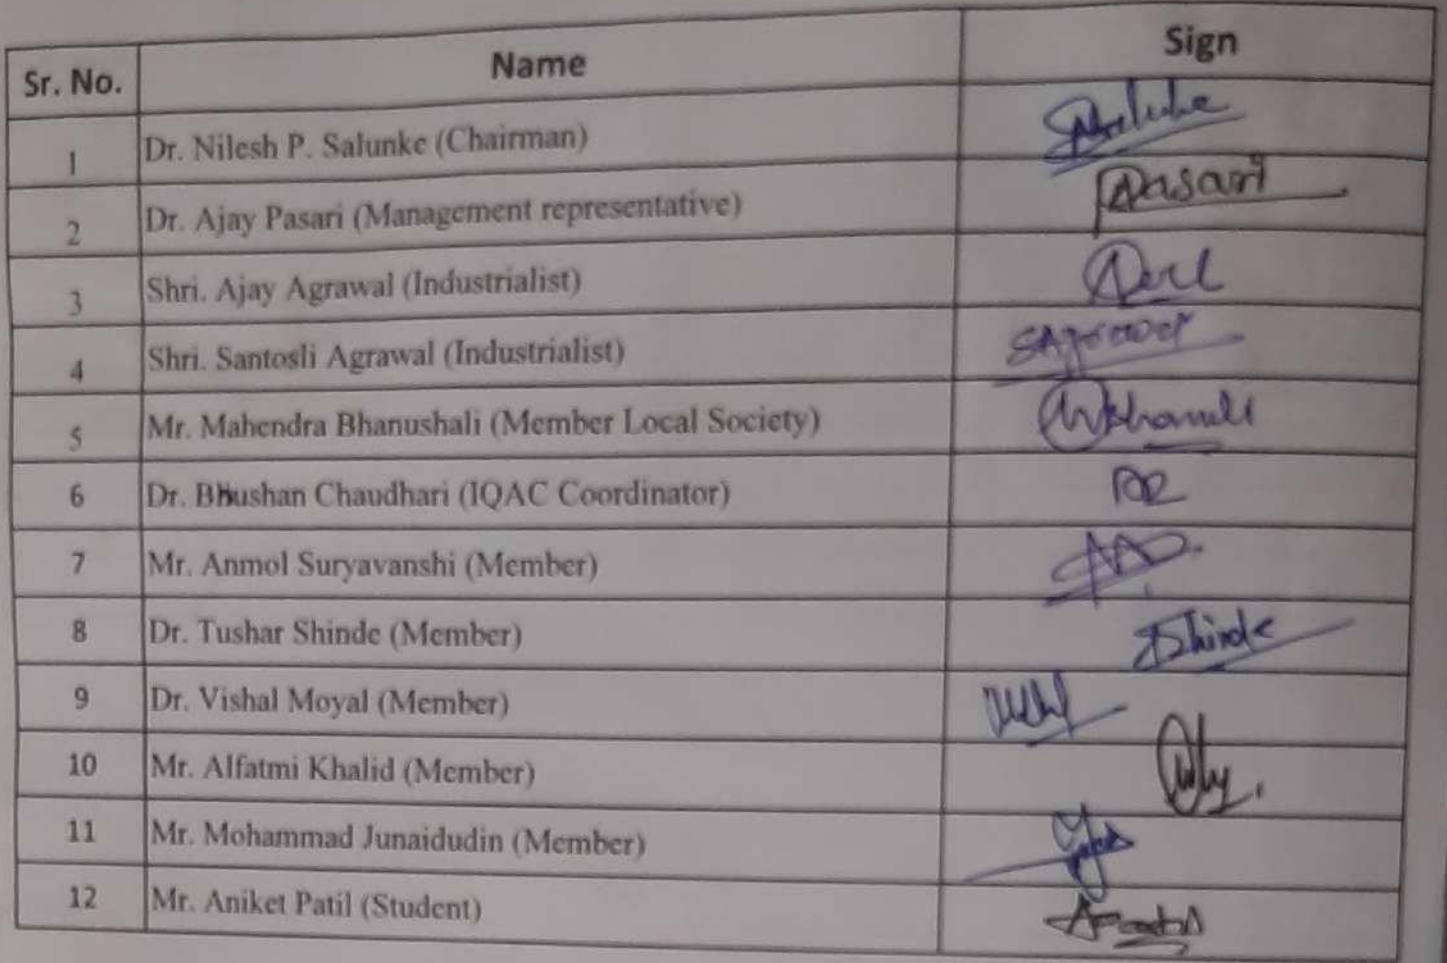 Sr. No. Name Sign
1 Dr. Nilesh P. Salunke (Chairman) Salunke
2 Dr. Ajay Pasari (Management representative) Pasari
3 Shri. Ajay Agrawal (Industrialist)
4 Shri. Santosli Agrawal (Industrialist) SAgrawal
5 Mr. Mahendra Bhanushali (Member Local Society)
6 Dr. Bhushan Chaudhari (IQAC Coordinator)
7 Mr. Anmol Suryavanshi (Member)
8 Dr. Tushar Shinde (Member) Shinde
9 Dr. Vishal Moyal (Member)
10 Mr. Alfatmi Khalid (Member)
11 Mr. Mohammad Junaidudin (Member)
12 Mr. Aniket Patil (Student)